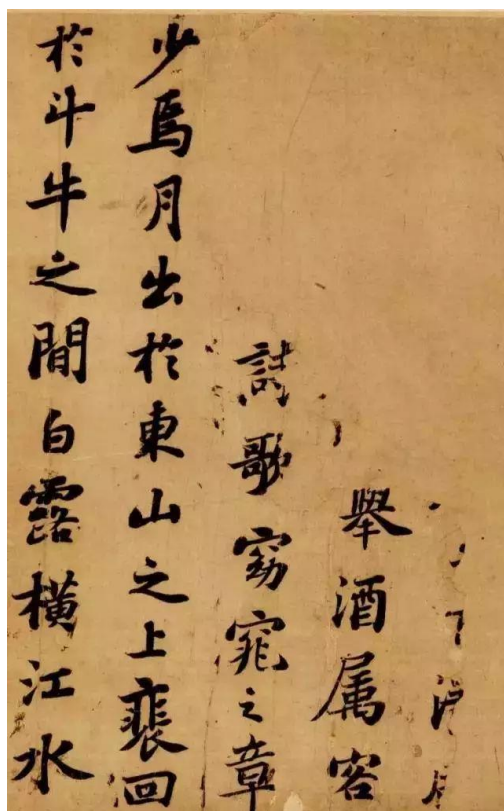 舉酒属客
詩歌窈窕之章
少焉月出於東山之上裵回
於斗牛之間白露橫江水